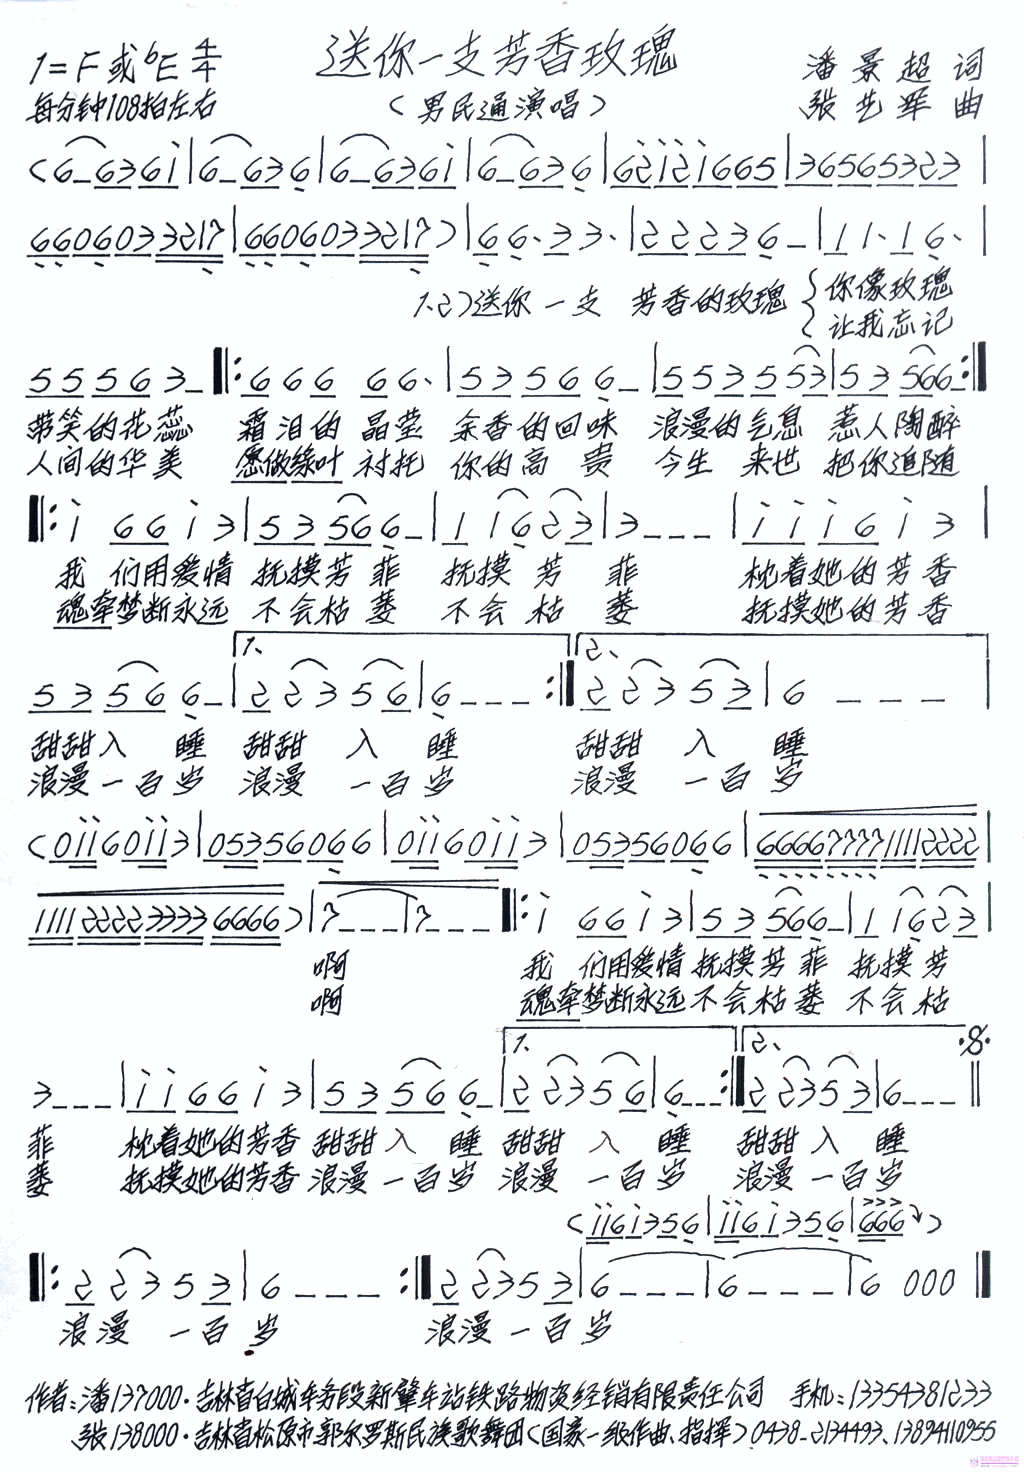 送你一支芳香玫瑰
1=F或ᵇE 4/4
潘景超 词
每分钟108拍左右
(男民通演唱)
张艺军 曲
(6-6361|6-636|6-6361|6-636|621216665|36565323|
6606033217|6606033217)|66.33.|22236-|11.16.|
1.2)送你一支 芳香的玫瑰
你像玫瑰
让我忘记
55563-‖:66666.|53566-|553553|53566-:‖
带笑的花蕊 霜泪的晶莹 余香的回味 浪漫的气息 惹人陶醉
人间的华美 愿做绿叶衬托 你的高贵 今生来世 把你追随
‖:16613|53566-|11623|3---|111613|
我们用爱情 抚摸芳菲 抚摸芳菲 枕着她的芳香
魂牵梦断永远 不会枯萎 不会枯萎 抚摸她的芳香
1. 2.
53566-|22356|6---:‖22353|6---
甜甜入睡 甜甜入睡 甜甜入睡
浪漫一百岁 浪漫一百岁 浪漫一百岁
(01160113|05356066|01160113|05356066|6666777711112222|
1111222233336666)|7---|7---‖:16613|53566-|11623|
啊 我们用爱情 抚摸芳菲 抚摸芳
啊 魂牵梦断永远 不会枯萎 不会枯
1. 2.
3---|116613|53566-|22356|6---:‖22353|6---‖
菲 枕着她的芳香 甜甜入睡 甜甜入睡 甜甜入睡
萎 抚摸她的芳香 浪漫一百岁 浪漫一百岁 浪漫一百岁
(1161356|1161356|666)
‖:22353|6---:‖22353|6---|6---|6000‖
浪漫一百岁 浪漫一百岁
作者:潘137000·吉林省白城车务段新肇车站铁路物资经销有限责任公司 手机:13354381233
张138000·吉林省松原市郭尔罗斯民族歌舞团(国家一级作曲、指挥)0438-2134493、13894110955